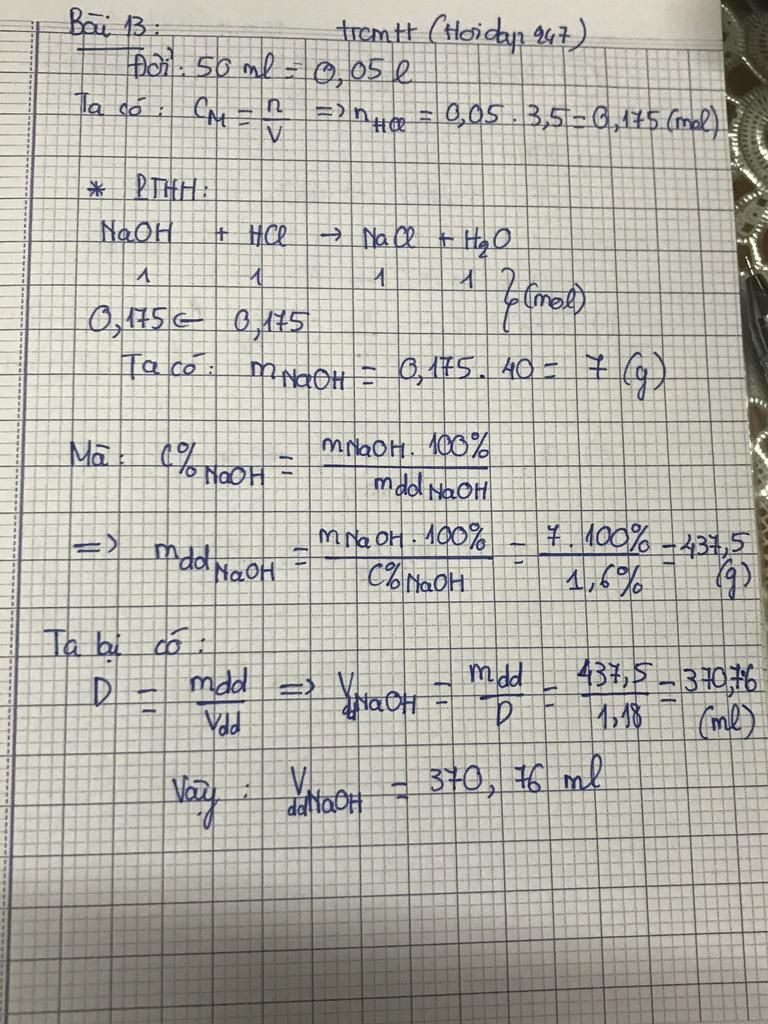 Bài 13: trcmtt (Hoidap 247)
Đổi: 50 ml = 0,05 l
Ta có: C_M = n/V => n_HCl = 0,05 . 3,5 = 0,175 (mol)
* PTHH:
NaOH + HCl → NaCl + H₂O
1 1 1 1 } (mol)
0,175 ← 0,175
Ta có: m_NaOH = 0,175 . 40 = 7 (g)
Mà: C%_NaOH = m_NaOH . 100% / mdd_NaOH
=> mdd_NaOH = m_NaOH . 100% / C%_NaOH = 7 . 100% / 1,6% = 437,5 (g)
Ta lại có:
D = mdd / Vdd => V_ddNaOH = mdd / D = 437,5 / 1,18 = 370,76 (ml)
Vậy: V_ddNaOH = 370,76 ml